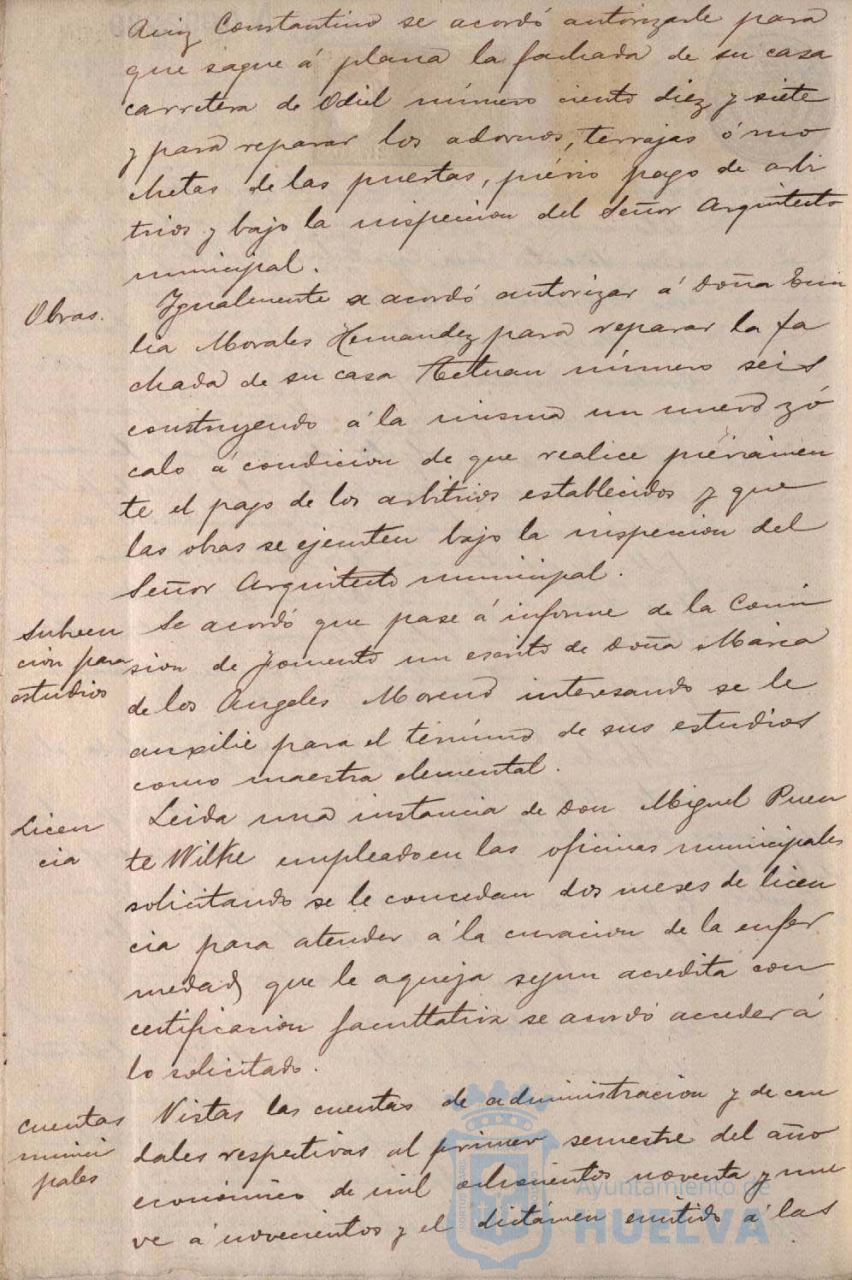 Ruiz Constantino se acordó autorizarle para
que saque á plana la fachada de su casa
carretera de Odiel número ciento diez y siete
y para reparar los adornos, terrajas ó mo
chetas de las puertas, prévio pago de arbi
trios y bajo la inspeccion del Señor Arquitecto
municipal.
Obras.
Igualmente se acordó autorizar á Doña Emi
lia Morales Hernandez para reparar la fa
chada de su casa Tetuan número seis
construyendo á la misma un nuevo zó
calo á condicion de que realice préviamen
te el pago de los arbitrios establecidos y que
las obras se ejecuten bajo la inspeccion del
Señor Arquitecto municipal.
Subven
cion para
estudios
Se acordó que pase á informe de la Comi
sion de fomento un escrito de Doña Maria
de los Angeles Moreno interesando se le
auxilie para el término de sus estudios
como maestra elemental.
Licen
cia
Leida una instancia de Don Miguel Puen
te Wilke empleado en las oficinas municipales
solicitando se le concedan dos meses de licen
cia para atender á la curacion de la enfer
medad que le aqueja segun acredita con
certificacion facultativa se acordó acceder á
lo solicitado.
Cuentas
munici
pales
Vistas las cuentas de administracion y de cau
dales respectivas al primer semestre del año
económico de mil ochocientos noventa y nue
ve á novecientos y el dictámen emitido á las
Ayuntamiento de
HUELVA